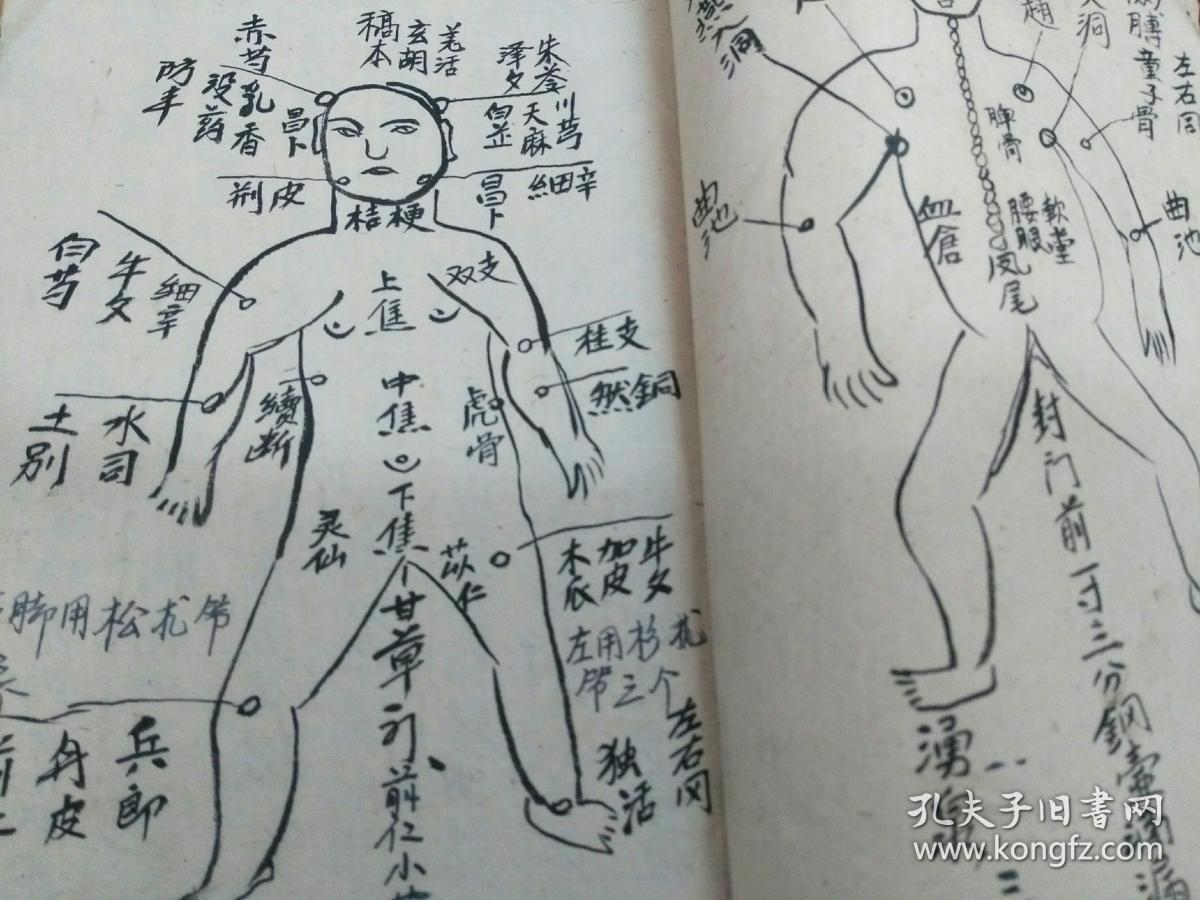 赤芎
防丰
没药
乳香
昌卜
稿本
玄胡
羌活
泽夕
朱苓
川芎
天麻
白芷
荆皮
昌卜
細辛
桔梗
白芍
牛夕
細辛
上焦
双支
桂支
然銅
土别
水司
續断
中焦
虎骨
下焦
灵仙
苡仁
木瓜
加皮
牛夕
脚用松
左用杉
三个
左右同
独活
兵郎
丹皮
甘草
前仁小
洞
膊童子骨
左右同
脾骨
曲池
曲池
血倉
腰眼
軟堂
凤尾
封门前一寸三分銅壶滴漏
湧泉
孔夫子旧书网
www.kongfz.com